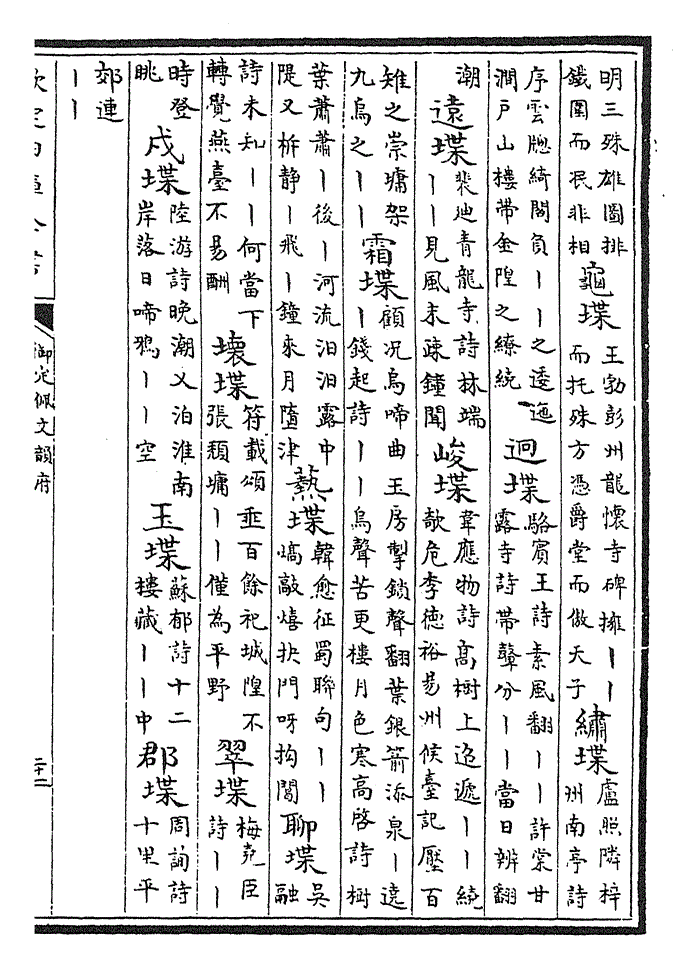 明三殊雄圖排鐵圍而畏非相 龜堞 王勃彭州龍懷寺碑擁丨丨而托殊方憑爵堂而傲天子 繡堞 盧照隣梓州南亭詩
序雲牕綺閣負丨丨之逶迤澗戶山樓帶金隍之繚繞 迥堞 駱賓王詩素風翻丨丨許棠甘露寺詩帶聲分丨丨當日辨翻
潮 遠堞 裴迪青龍寺詩林端丨丨見風末疎鐘聞 峻堞 韋應物詩高樹上迢遞丨丨繞欹危李德裕揚州候臺記壓百
雉之崇墉架九烏之丨丨 霜堞 顧況烏啼曲玉房掣鎖聲翻葉銀箭添泉丨遠丨錢起詩丨丨烏聲苦更樓月色寒高啓詩樹
葉蕭蕭丨後丨河流汩汩露中隄又柝静丨飛丨鐘來月墮津 熱堞 韓愈征蜀聯句丨丨熇歊熺抉門呀拗闔 聊堞 吳融
詩未知丨丨何當下轉覺燕臺不易酬 壊堞 符載頌亜百餘祀城隍不張頽墉丨丨僅為平野 翠堞 梅堯臣詩丨丨
時登眺 戍堞 陸游詩晚潮又泊淮南岸落日啼鴉丨丨空 玉堞 蘇郁詩十二樓藏丨丨中 郡堞 周詢詩十里平
郊連丨丨
欽定四庫全書
御定佩文韻府